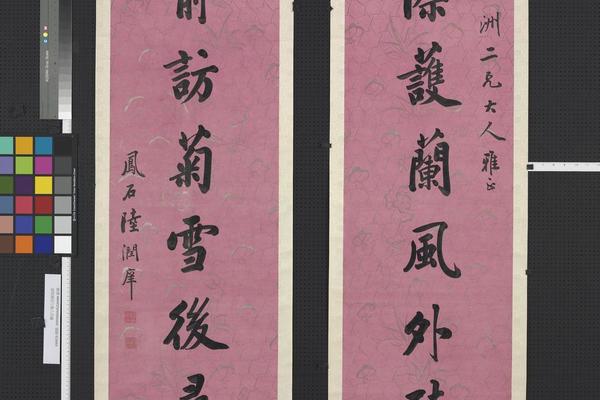 洲二兄大人雅正
際護蘭風外
前訪菊雪後
鳳石陸潤庠